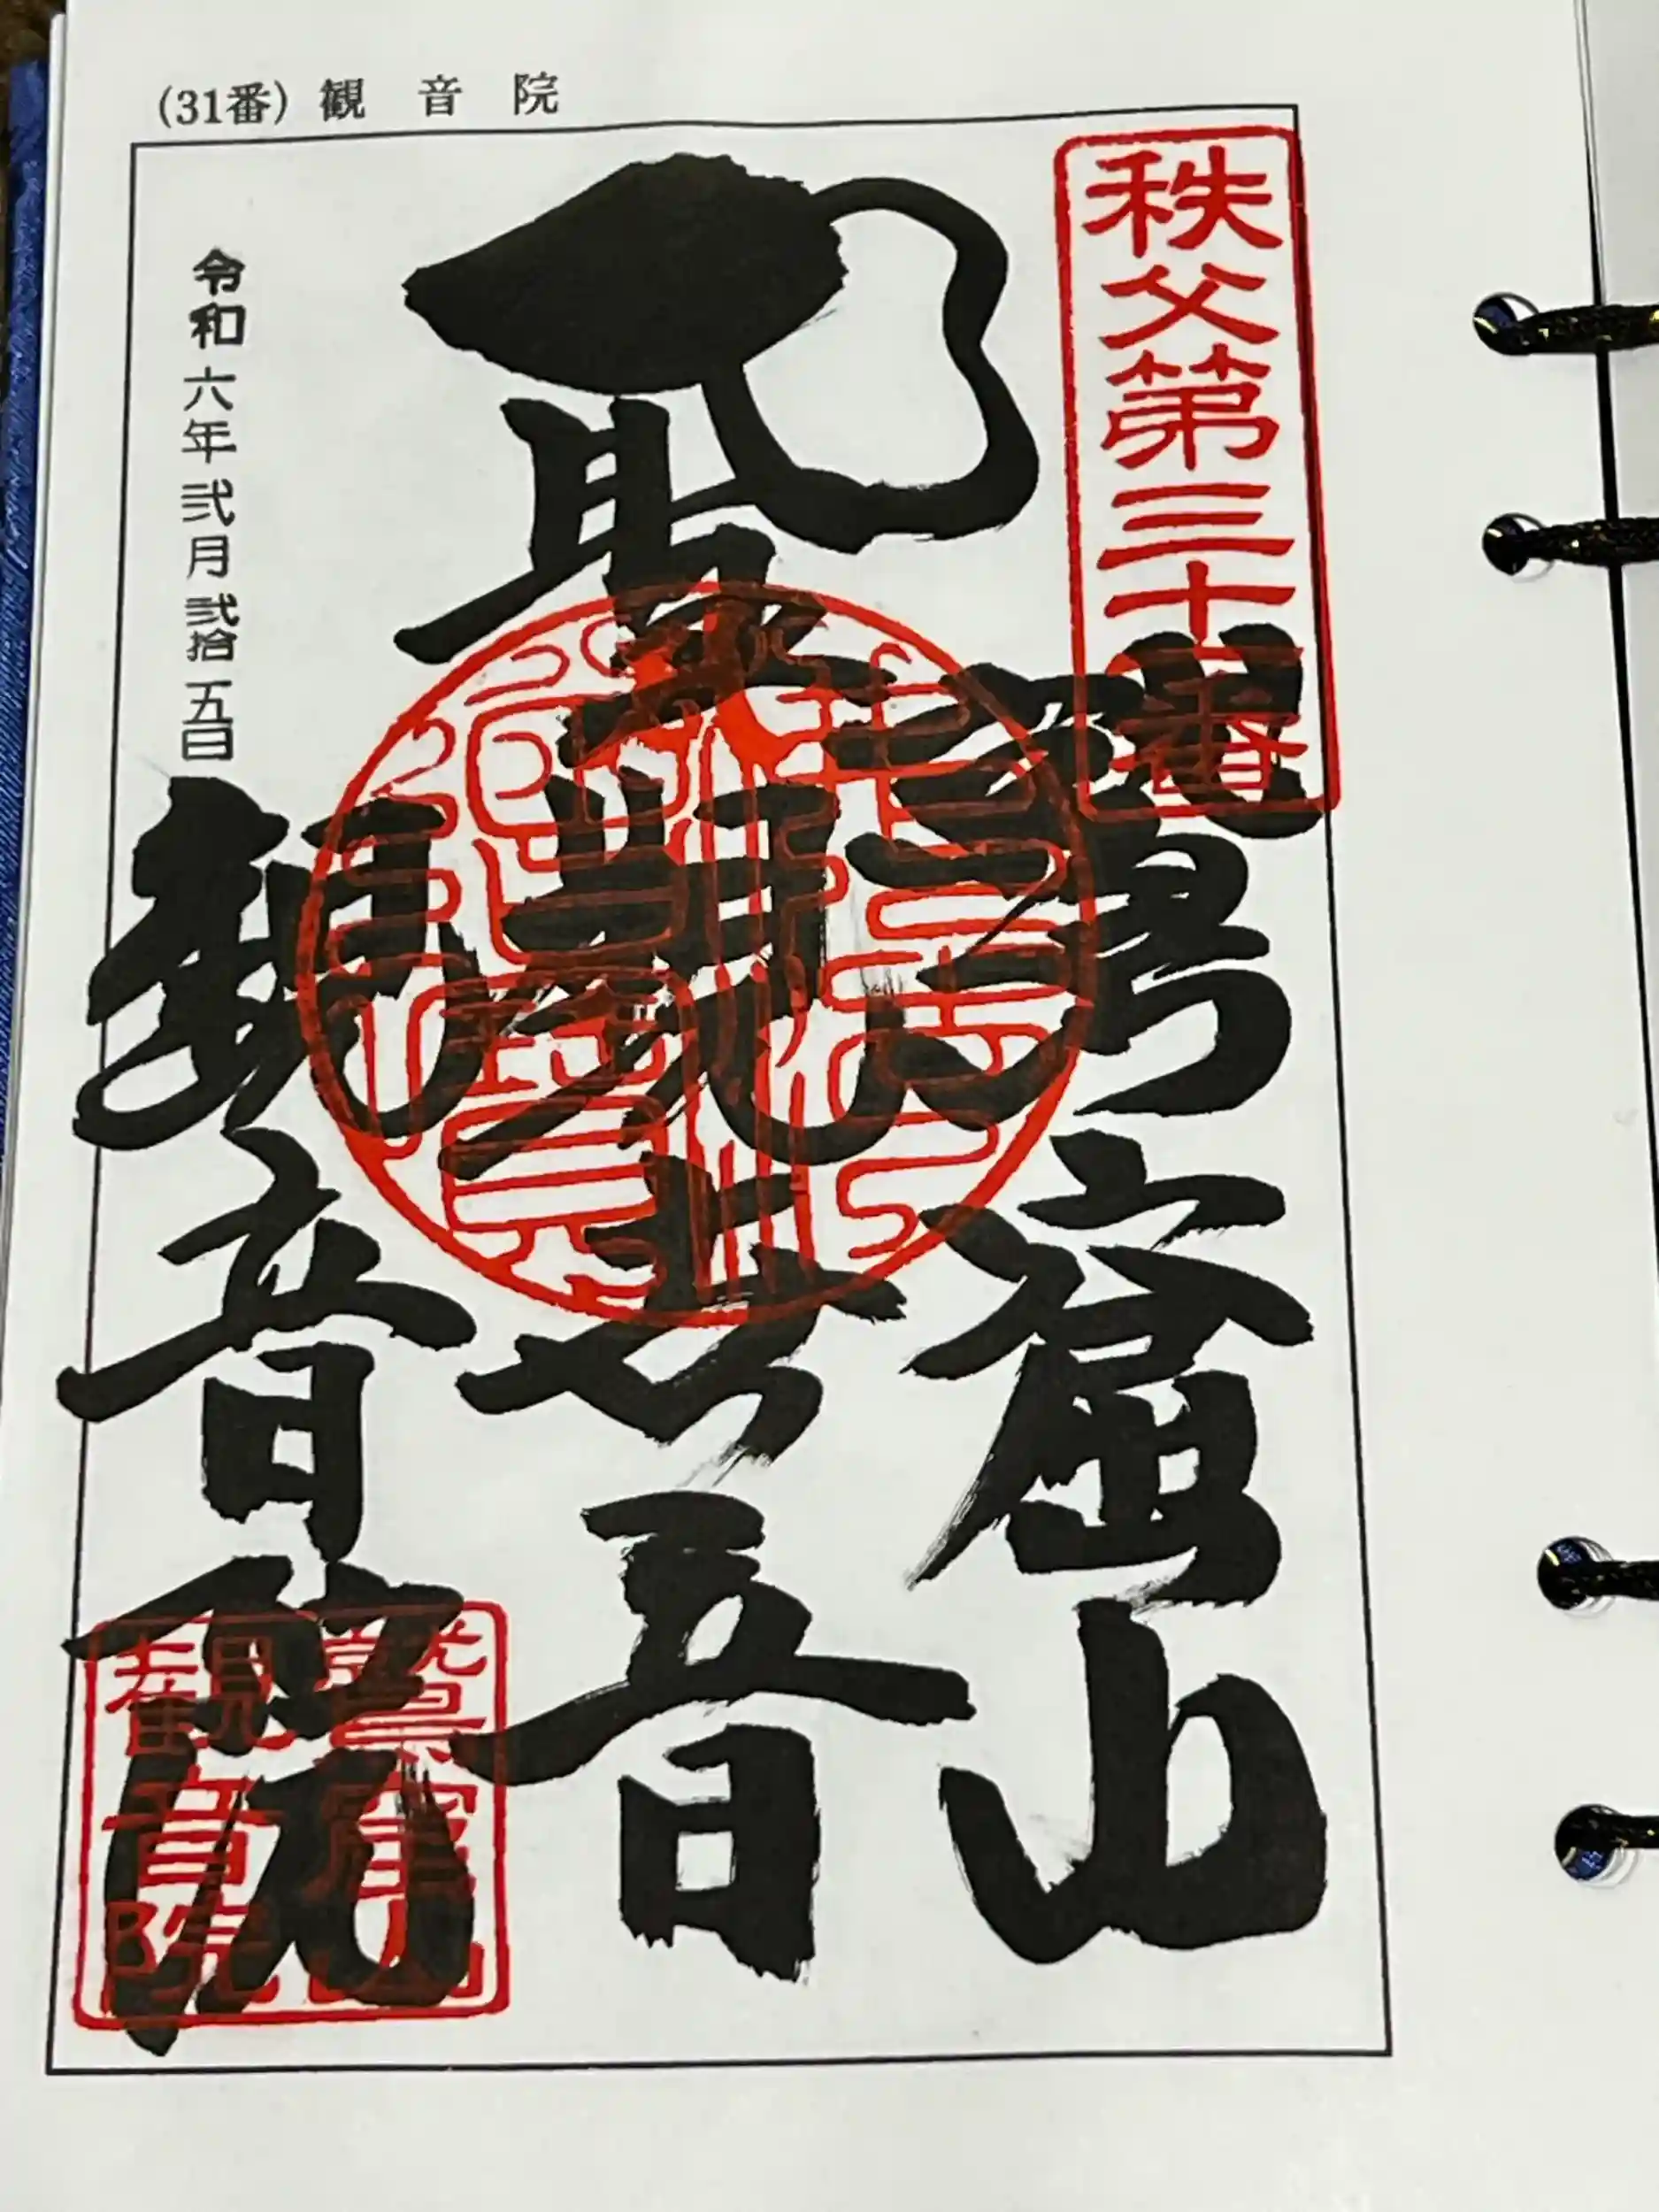 (31番) 観音院
秩父第三十一番
鷲窟山
聖観世音
観音院
令和六年弐月弐拾五日
鷲窟山
観音院